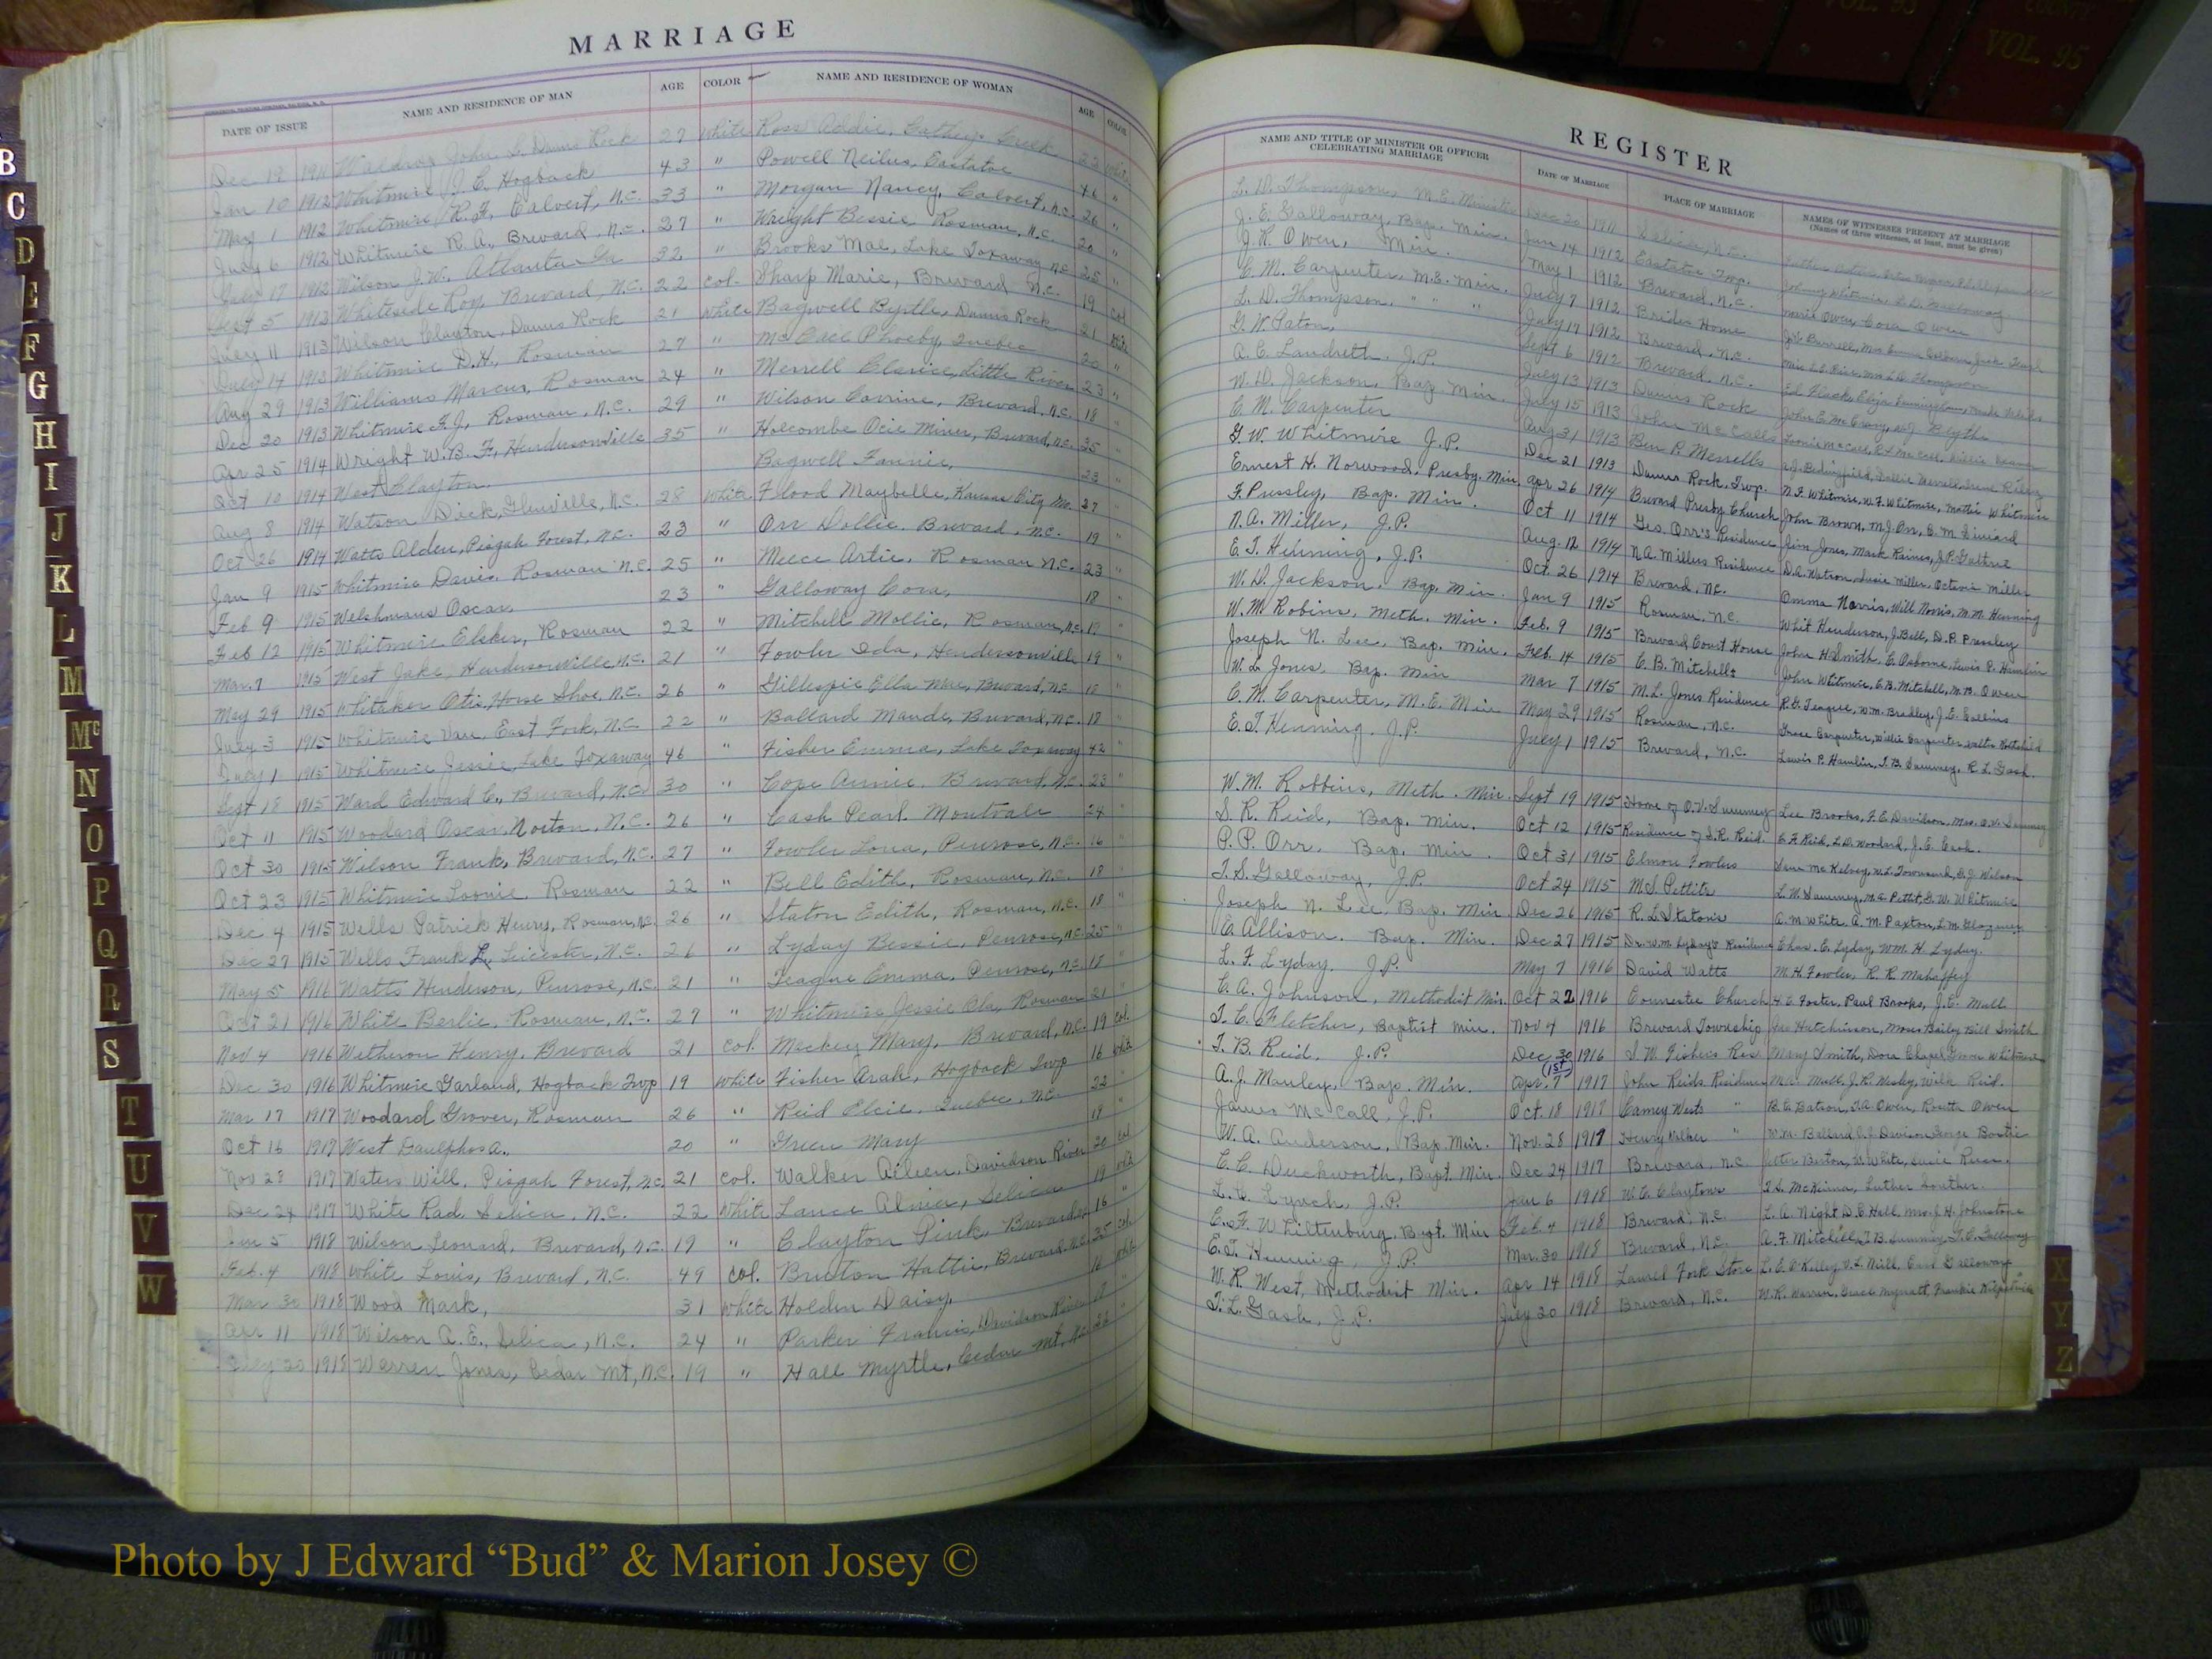 MARRIAGE
DATE OF ISSUE NAME AND RESIDENCE OF MAN AGE COLOR NAME AND RESIDENCE OF WOMAN AGE COLOR
Dec 19 1911 Waldrop John L. Dunns Rock 27 White Ross Addie, Cathey's Creek 22 White
Jan 10 1912 Whitmire J. E. Hogback 43 " Powell Neilus, Eastatoe 46 "
May 1 1912 Whitmire R. F. Calvert, N.C. 33 " Morgan Nancy, Calvert, N.C. 26 "
July 6 1912 Whitmire R. A., Brevard, N.C. 27 " Wright Bessie, Rosman, N.C. 20 "
July 17 1912 Wilson J. W. Atlanta Ga 32 " Brooks Mae, Lake Toxaway N.C. 25 "
Sept 5 1913 Whiteside Roy, Brevard, N.C. 22 col. Sharp Marie, Brevard N.C. 19 col
July 11 1913 Wilson Clayton, Dunns Rock 21 white Bagwell Byrtle, Dunns Rock 21 white
July 14 1913 Whitmire D. H., Rosman 27 " McCall Phoeby, Quebec 20 "
Aug 29 1913 Williams Marcus, Rosman 24 " Merrell Clarice, Little River 23 "
Dec 20 1913 Whitmire F. J., Rosman, N.C. 29 " Wilson Corrine, Brevard, N.C. 18 "
Apr 25 1914 Wright W. B. F., Hendersonville 35 " Holcombe Ocie Miner, Brevard, N.C. 35 "
Oct 10 1914 West Clayton. Bagwell Fannie, 23 "
Aug 8 1914 Watson Dick, Glenville, N.C. 28 White Flood Maybelle, Kansas City Mo. 27 "
Oct 26 1914 Watts Alden, Pisgah Forest, N.C. 23 " Orr Dollie, Brevard, N.C. 19 "
Jan 9 1915 Whitmire Davis, Rosman N.C. 25 " Meece Artie, Rosman N.C. 23 "
Feb 9 1915 Welshmans Oscar, 23 " Galloway Cora, 18 "
Feb 12 1915 Whitmire Elsker, Rosman 22 " Mitchell Mollie, Rosman, N.C. 19 "
Mar. 7 1915 West Jake, Hendersonville, N.C. 21 " Fowler Ida, Hendersonville 19 "
May 29 1915 Whitaker Otis, Horse Shoe, N.C. 26 " Gillespie Ella Mae, Brevard, N.C. 18 "
July 3 1915 Whitmire Van, East Fork, N.C. 22 " Ballard Maude, Brevard, N.C. 18 "
July 1 1915 Whitmire Jessie, Lake Toxaway 46 " Fisher Emma, Lake Toxaway 42 "
Sept 18 1915 Ward Edward C., Brevard, N.C. 30 " Cope Annie, Brevard, N.C. 23 "
Oct 11 1915 Woodard Oscar, Norton, N.C. 26 " Cash Pearl, Montvale 24 "
Oct 30 1915 Wilson Frank, Brevard, N.C. 27 " Fowler Lona, Penrose, N.C. 16 "
Oct 23 1915 Whitmire Loonie, Rosman 22 " Bell Edith, Rosman, N.C. 18 "
Dec 4 1915 Wells Patrick Henry, Rosman, N.C. 26 " Staton Edith, Rosman, N.C. 18 "
Dec 27 1915 Wells Frank L. Leicester, N.C. 26 " Lyday Bessie, Penrose, N.C. 25 "
May 5 1916 Watts Henderson, Penrose, N.C. 21 " Teague Emma, Penrose, N.C. 18 "
Oct 21 1916 White Berlie, Rosman, N.C. 27 " Whitmire Jessie Ola, Rosman 21 "
Nov 4 1916 Wetheron Henry, Brevard 21 col. Mackey Mary, Brevard, N.C. 19 col.
Dec 30 1916 Whitmire Garland, Hogback Twp 19 white Fisher Arah, Hogback Twp 16 white
Mar 17 1917 Woodard Grover, Rosman 26 " Reid Elcie, Quebec, N.C. 22 "
Oct 16 1917 West Daulphos A., 20 " Green Mary 18 "
Nov 28 1917 Waters Will, Pisgah Forest, N.C. 21 col. Walker Aileen, Davidson River 20 col
Dec 24 1917 White Rad, Selica, N.C. 22 White Lance Almer, Selica 19 white
Jan 5 1918 Wilson Leonard, Brevard, N.C. 19 " Clayton Pink, Brevard 16 "
Feb. 4 1918 White Louis, Brevard, N.C. 49 col. Bruton Hattie, Brevard, N.C. 35 col.
Mar 30 1918 Wood Mark, 31 White Holden Daisy, 18 white
Apr 11 1918 Wilson A. E., Selica, N.C. 24 " Parker Francis, Davidson River 17 "
July 20 1918 Warren Jones, Cedar Mt, N.C. 19 " Hall Myrtle, Cedar Mt, N.C. 22 "
REGISTER
NAME AND TITLE OF MINISTER OR OFFICER CELEBRATING MARRIAGE DATE OF MARRIAGE PLACE OF MARRIAGE NAMES OF WITNESSES PRESENT AT MARRIAGE
(Names of three witnesses, at least, must be given)
L. D. Thompson, M.E. Minister Dec 20 1911 Selica, N.C.
J. E. Galloway, Bap. Min. Jan 14 1912 Eastatoe Twp. Johnny Whitmire, L. D. Galloway
J. K. Owen, Min. May 1 1912 Brevard, N.C. Marie Owen, Cora Owen
C. M. Carpenter, M.E. Min. July 7 1912 Brides Home
L. D. Thompson, " " " July 17 1912 Brevard, N.C.
G. W. Paton, Sept 6 1912 Brevard, N.C.
A. C. Landreth, J.P. July 13 1913 Dunns Rock
W. D. Jackson, Bap. Min. July 15 1913 John McCalls
C. M. Carpenter Aug 31 1913 Ben P. Merrells
G. W. Whitmire J.P. Dec 21 1913 Dunns Rock, Twp. N. F. Whitmire, W. F. Whitmire, Mattie Whitmire
Ernest H. Norwood, Presby. Min. Apr 26 1914 Brevard Presby Church John Brown, M. J. Orr, C. M. Siniard
F. Pressley, Bap. Min. Oct 11 1914 Geo. Orr's Residence Jim Jones, Mark Raines, J. P. Galtrie
N. A. Miller, J.P. Aug. 12 1914 N.A. Millers Residence D. A. Watson, Susie Miller, Octavia Miller
E. T. Henning, J.P. Oct. 26 1914 Brevard, N.C. Omma Norris, Will Norris, M. M. Henning
W. D. Jackson, Bap. Min. Jan 9 1915 Rosman, N.C. Whit Henderson, J. Bell, D. P. Pressley
W. M. Robins, Meth. Min. Feb. 9 1915 Brevard Court House John H. Smith, C. Osborne, Lewis P. Hamlin
Joseph N. Lee, Bap. Min. Feb. 14 1915 C. B. Mitchells John Whitmire, C. B. Mitchell, M. B. Owen
W. L. Jones, Bap. Min Mar 7 1915 M. L. Jones Residence R. G. Teague, Wm. Bradley, J. E. Collins
C. M. Carpenter, M.E. Min May 29 1915 Rosman, N.C. Grace Carpenter, Willie Carpenter
E. T. Henning, J.P. July 1 1915 Brevard, N.C. Lewis P. Hamlin, T. B. Summey, R. L. Gash
W. M. Robbins, Meth. Min. Sept 19 1915 Home of O. V. Summey Lee Brooks, F. E. Davidson, Mrs. O. V. Summey
S. R. Reid, Bap. Min. Oct 12 1915 Residence of S. R. Reid C. F. Reid, L. D. Woodard, J. E. Cash
P. P. Orr, Bap. Min. Oct 31 1915 Elmore Fowlers Dave McKelvey, W. L. Townsend, G. J. Wilson
T. S. Galloway, J.P. Oct 24 1915 M. S. Pettits L. W. Summey, M. S. Pettit, G. W. Whitmire
Joseph N. Lee, Bap. Min Dec 26 1915 R. L. Staton's A. M. White, A. M. Paxton, L. M. Glazener
E. Allison, Bap. Min. Dec 27 1915 Dr. W. M. Lyday's Residence Chas. E. Lyday, Wm. H. Lyday.
L. F. Lyday, J.P. May 7 1916 David Watts M. H. Fowler, R. R. Mahaffey
C. A. Johnson, Methodist Min. Oct 22 1916 Connestee Church H. C. Foster, Paul Brooks, J. C. Mull
T. C. Fletcher, Baptist Min. Nov 4 1916 Brevard Township Jas Hutchinson, Moses Bailey, Bill Smith
T. B. Reid, J.P. Dec. 30 1916 S. W. Fishers Res Mary Smith, Dora Chapel, Grover Whitmire
A. J. Manley, Bap. Min. Apr. 7 (1st) 1917 John Reids Residence
James McCall, J.P. Oct. 18 1917 Camey Wests " B. C. Batson, T. A. Owen, Rosetta Owen
W. A. Anderson, Bap. Min. Nov. 28 1917 Henry Walker "
C. C. Duckworth, Bapt. Min. Dec 24 1917 Brevard, N.C.
L. C. Lynch, J.P. Jan 6 1918 W. C. Claytons T. L. McKinna, Luther Souther.
C. F. Whiltenburg, Bapt. Min Feb. 4 1918 Brevard, N.C. L. A. Night, D. C. Hall, Mrs. J. H. Johnstone
E. T. Henning, J.P. Mar. 30 1918 Brevard, N.C. A. F. Mitchell, T. B. Summey, T. C. Galloway
W. R. West, Methodist Min. Apr 14 1918 Laurel Fork Store
T. L. Gash, J.P. July 20 1918 Brevard, N.C. W. R. Warren, Grace Mynatt, Frankie Kilpatrick
B
C
D
E
F
G
H
I
J
K
L
M
Mc
N
O
P
Q
R
S
T
U
V
W
X
Y
Z
VOL. 95
VOL. 95
Photo by J Edward “Bud” & Marion Josey ©